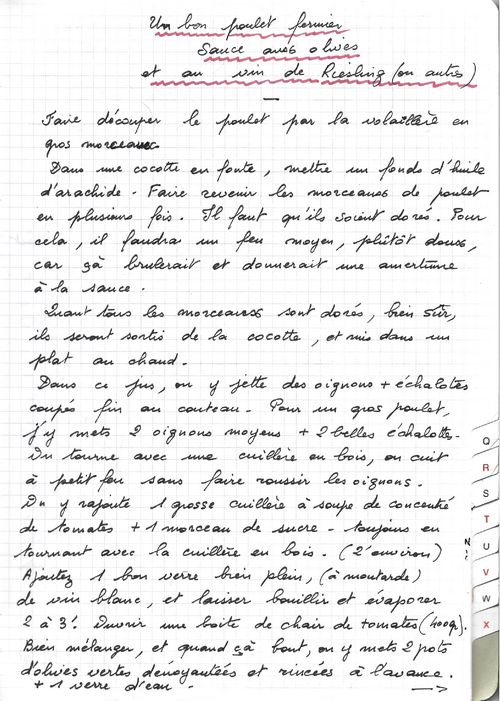 Un bon poulet fermier
Sauce aux olives
et au vin de Riesling (ou autres)
Faire découper le poulet par la volaillère en
gros morceaux
Dans une cocotte en fonte, mettre un fonds d'huile
d'arachide - Faire revenir les morceaux de poulet
en plusieurs fois. Il faut qu'ils soient dorés. Pour
cela, il faudra un feu moyen, plûtôt doux,
car çà brulerait et donnerait une amertume
à la sauce.
Quant tous les morceaux sont dorés, bien sûr,
ils seront sortis de la cocotte, et mis dans un
plat au chaud.
Dans ce jus, on y jette des oignons + échalotes
coupés fin au couteau. Pour un gros poulet,
j'y mets 2 oignons moyens + 2 belles échalottes.
On tourne avec une cuillère en bois, on cuit
à petit feu sans faire roussir les oignons.
On y rajoute 1 grosse cuillère à soupe de concentré
de tomates + 1 morceau de sucre - toujours en
tournant avec la cuillère en bois. (2' environ)
Ajoutez 1 bon verre bien plein, (à moutarde)
de vin blanc, et laisser bouillir et évaporer
2 à 3'. Ouvrir une boite de chair de tomates (400gr).
Bien mélanger, et quand çà bout, on y mets 2 pots
d'olives vertes dénoyautées et rincées à l'avance.
+ 1 verre d'eau. →
Q
R
S
T
U
V
W
X